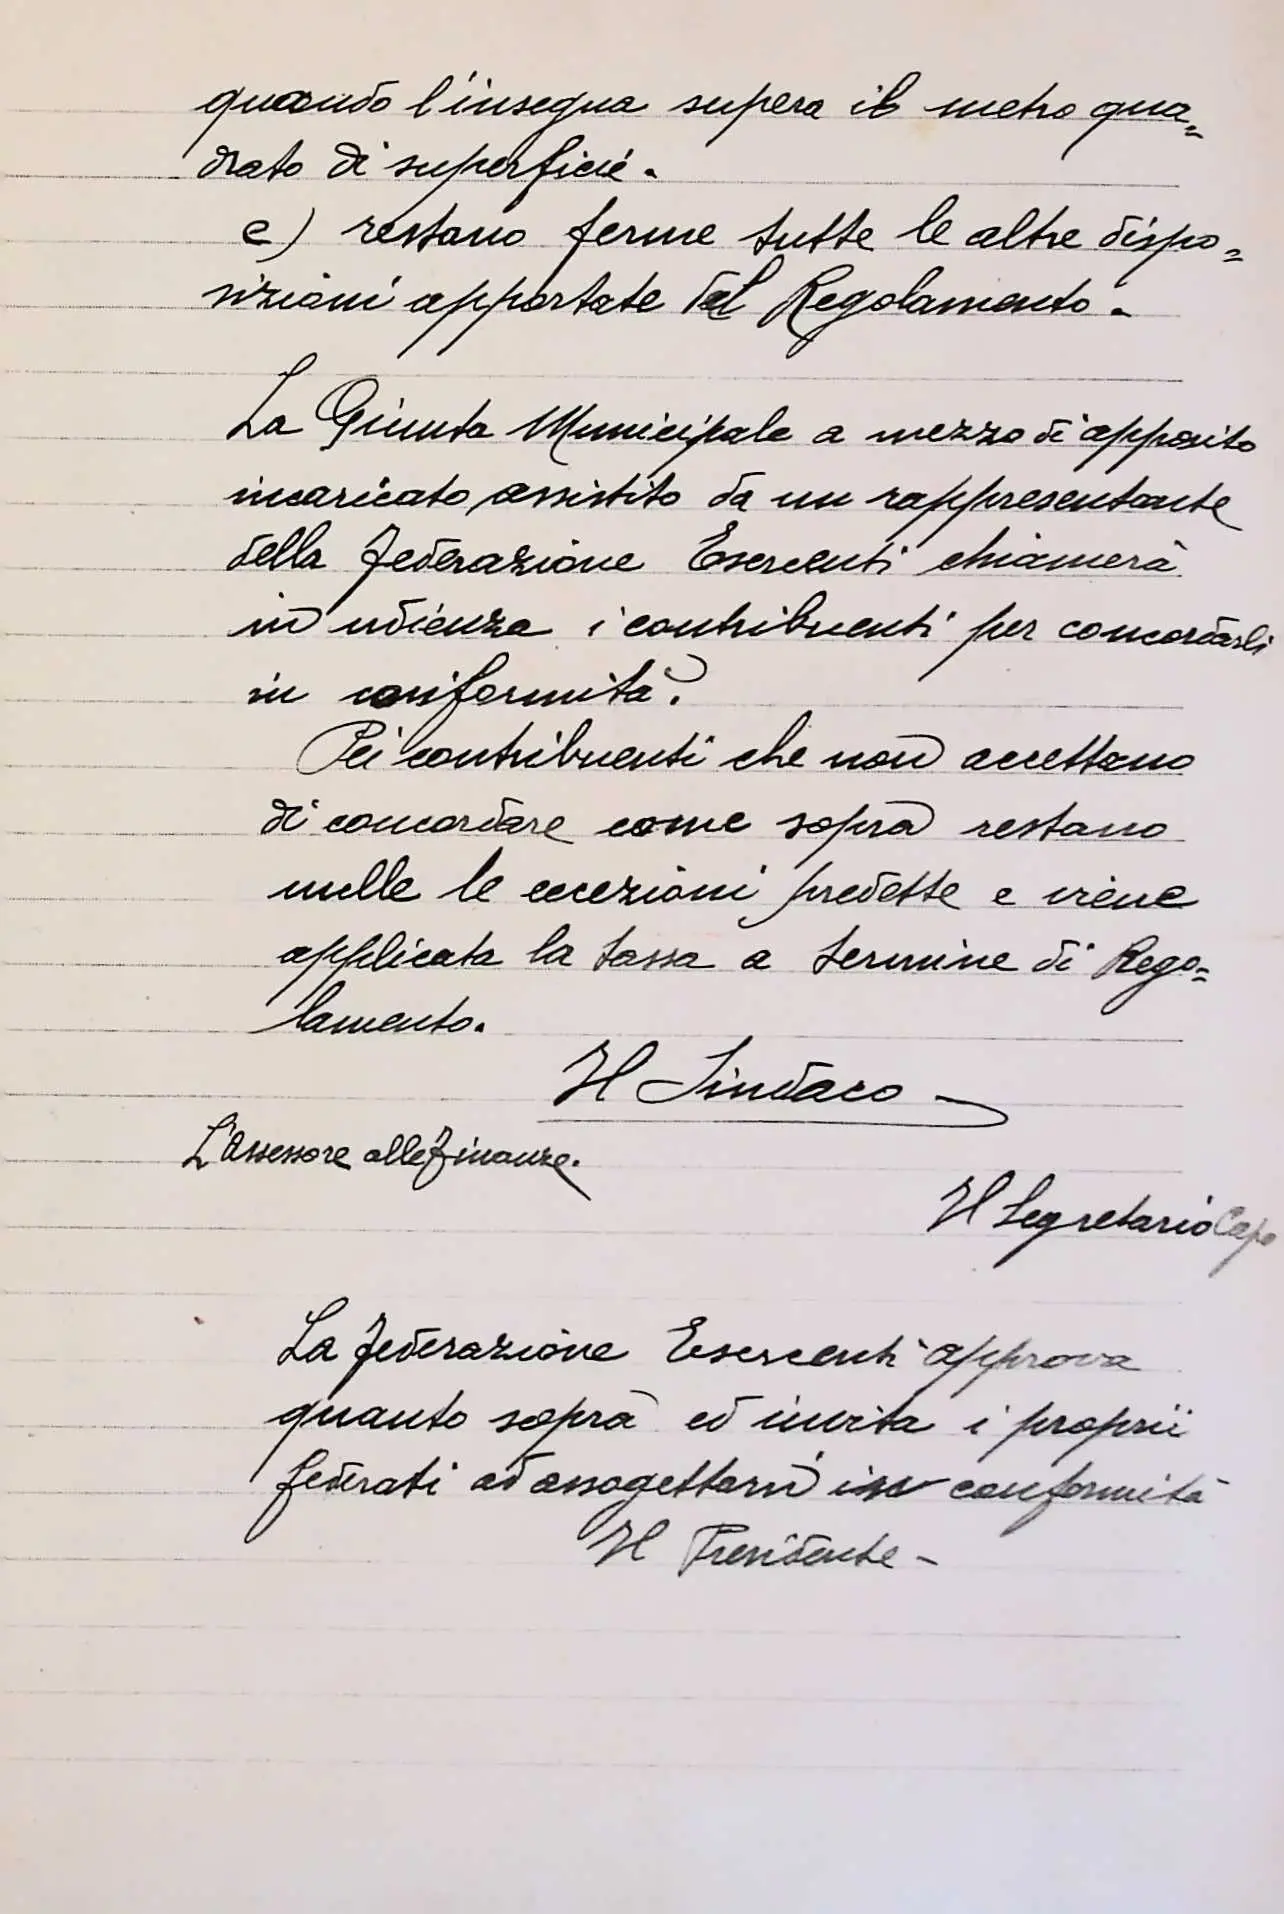 quando l'insegna supera il metro qua=
drato di superficie.
e) restano ferme tutte le altre dispo=
sizioni apportate dal Regolamento.
La Giunta Municipale a mezzo di apposito
incaricato assistito da un rappresentante
della Federazione Esercenti chiamerà
in udienza i contribuenti per concordarli
in conformità.
Pei contribuenti che non accettano
di concordare come sopra restano
nulle le eccezioni predette e viene
applicata la tassa a termine di Rego=
lamento.
Il Sindaco
L'Assessore alle Finanze.
Il Segretario Capo
La Federazione Esercenti approva
quanto sopra ed invita i proprii
federati ad assogettarsi in conformità
Il Presidente -